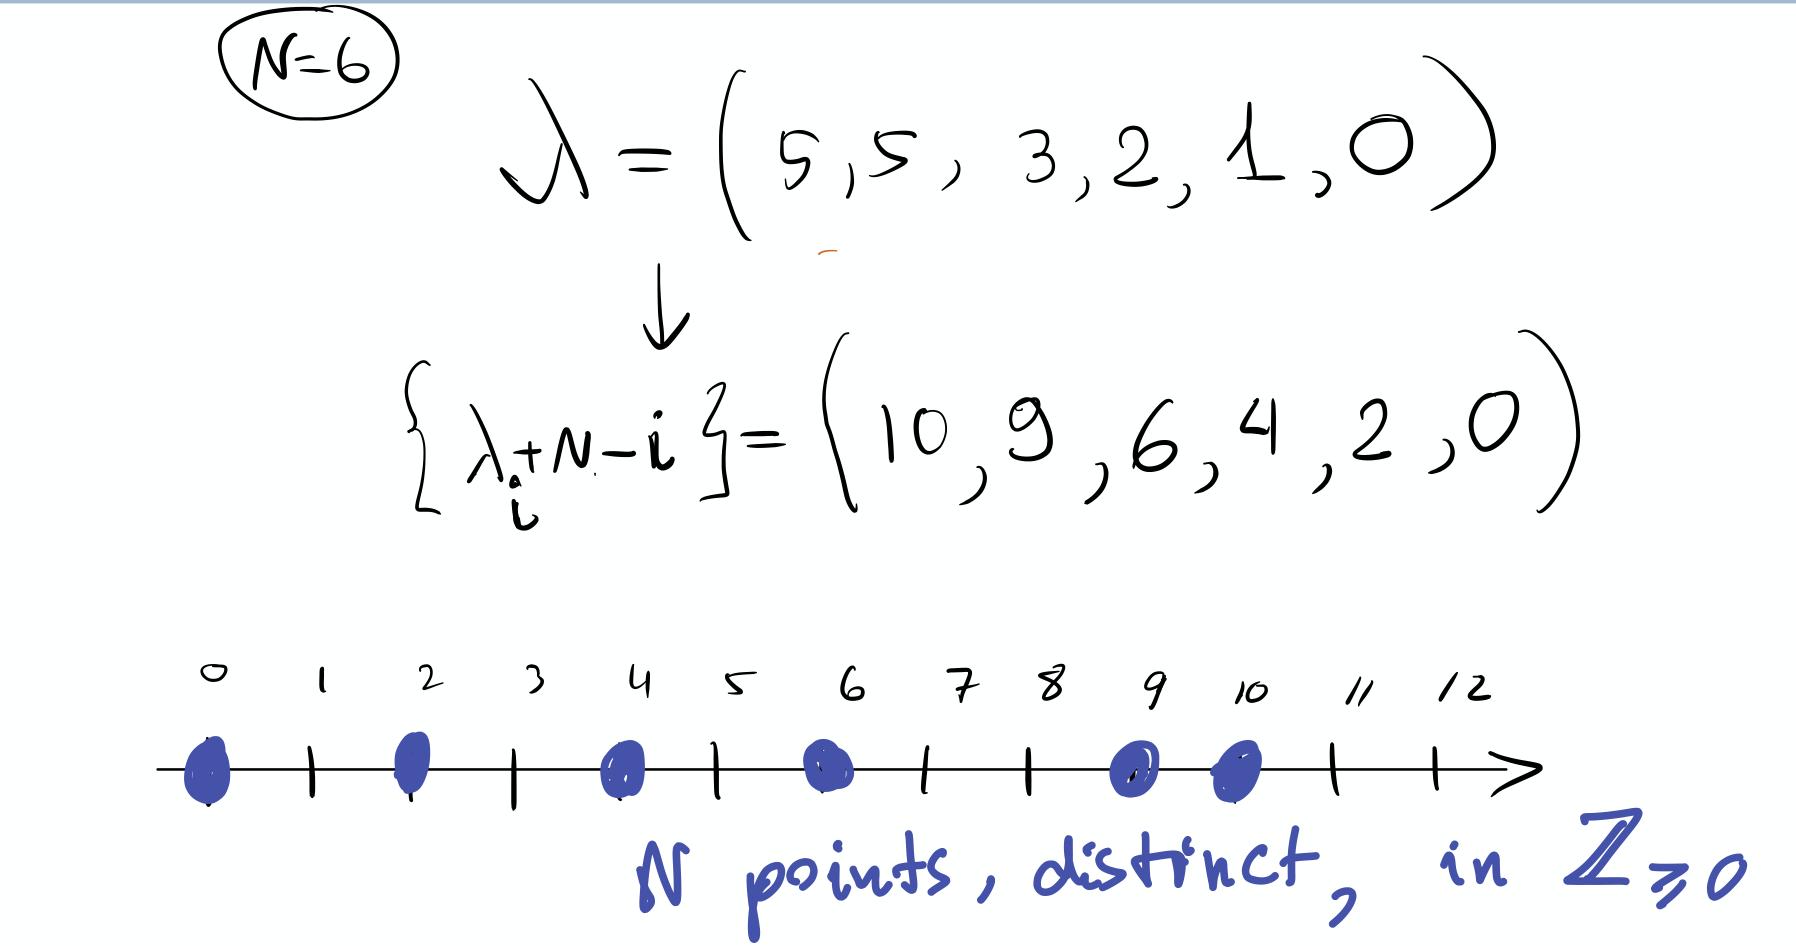 N=6
λ = (5,5,3,2,1,0)
↓
{λ_i+N-i} = (10,9,6,4,2,0)
0 1 2 3 4 5 6 7 8 9 10 11 12
N points, distinct, in ℤ≥0